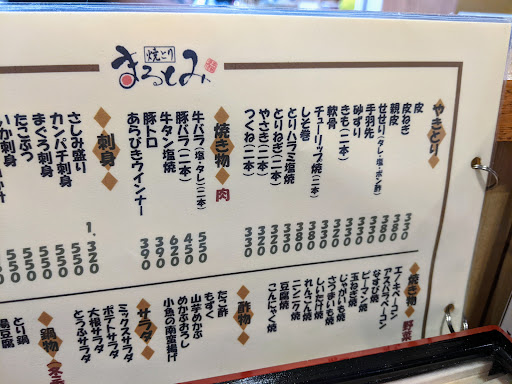 焼とり
まるとみ
やきとり
皮
皮ねぎ
親皮
せせり(タレ・塩・ポン酢)
手羽先
砂ずり
きも(二本)
軟骨
チューリップ焼(二本)
しそ巻
とりハラミ塩焼
とりねぎ(二本)
やさき(二本)
つくね(二本)
焼き物 肉
牛バラ(塩・タレ)(二本) 550
豚バラ(二本) 450
牛タン塩焼 620
豚トロ 390
あらびきウインナー 390
刺身
さしみ盛り 1,320
カンパチ刺身 550
まぐろ刺身 550
たこぶつ 550
いか刺身 550
焼き物 野菜
エノキベーコン
アスパラベーコン
なすび焼
ピーマン焼
玉ねぎ焼
じゃがいも焼
さつまいも焼
しいたけ焼
れんこん焼
ニンニク焼
豆腐焼
こんにゃく焼
酢物
たこ酢
もずく
山芋めかぶ
めかぶおろし
小魚の南蛮揚げ
サラダ
ミックスサラダ
ポテトサラダ
大根サラダ
とうふサラダ
鍋物
とり鍋
湯豆腐